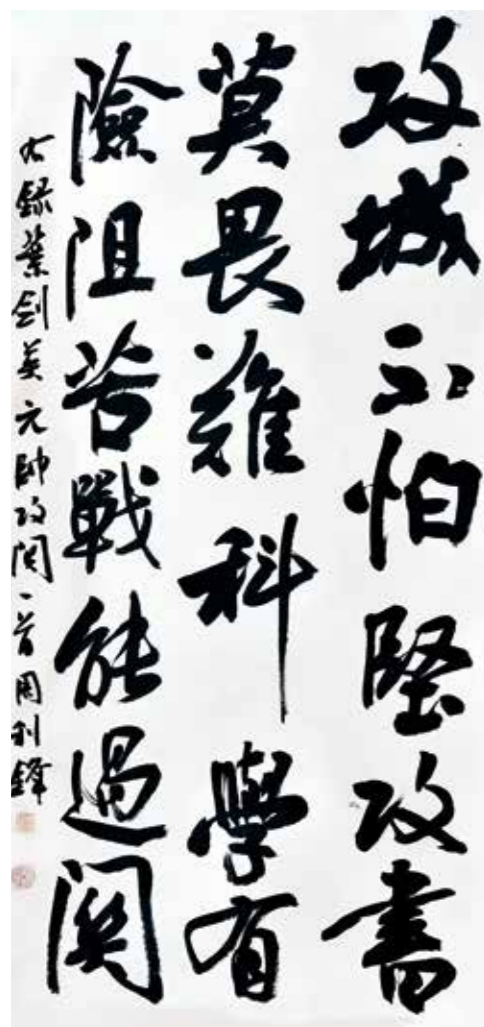 攻城不怕堅攻書
莫畏難科學有
險阻苦戰能過関
右録葉劍英元帥攻関一首周利鋒